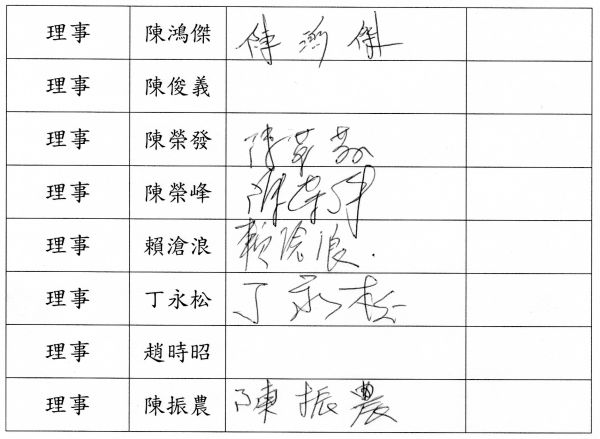 理事 陳鴻傑 陳鴻傑
理事 陳俊義
理事 陳榮發 陳榮發
理事 陳榮峰 陳榮峰
理事 賴滄浪 賴滄浪.
理事 丁永松 丁永松
理事 趙時昭
理事 陳振農 陳振農